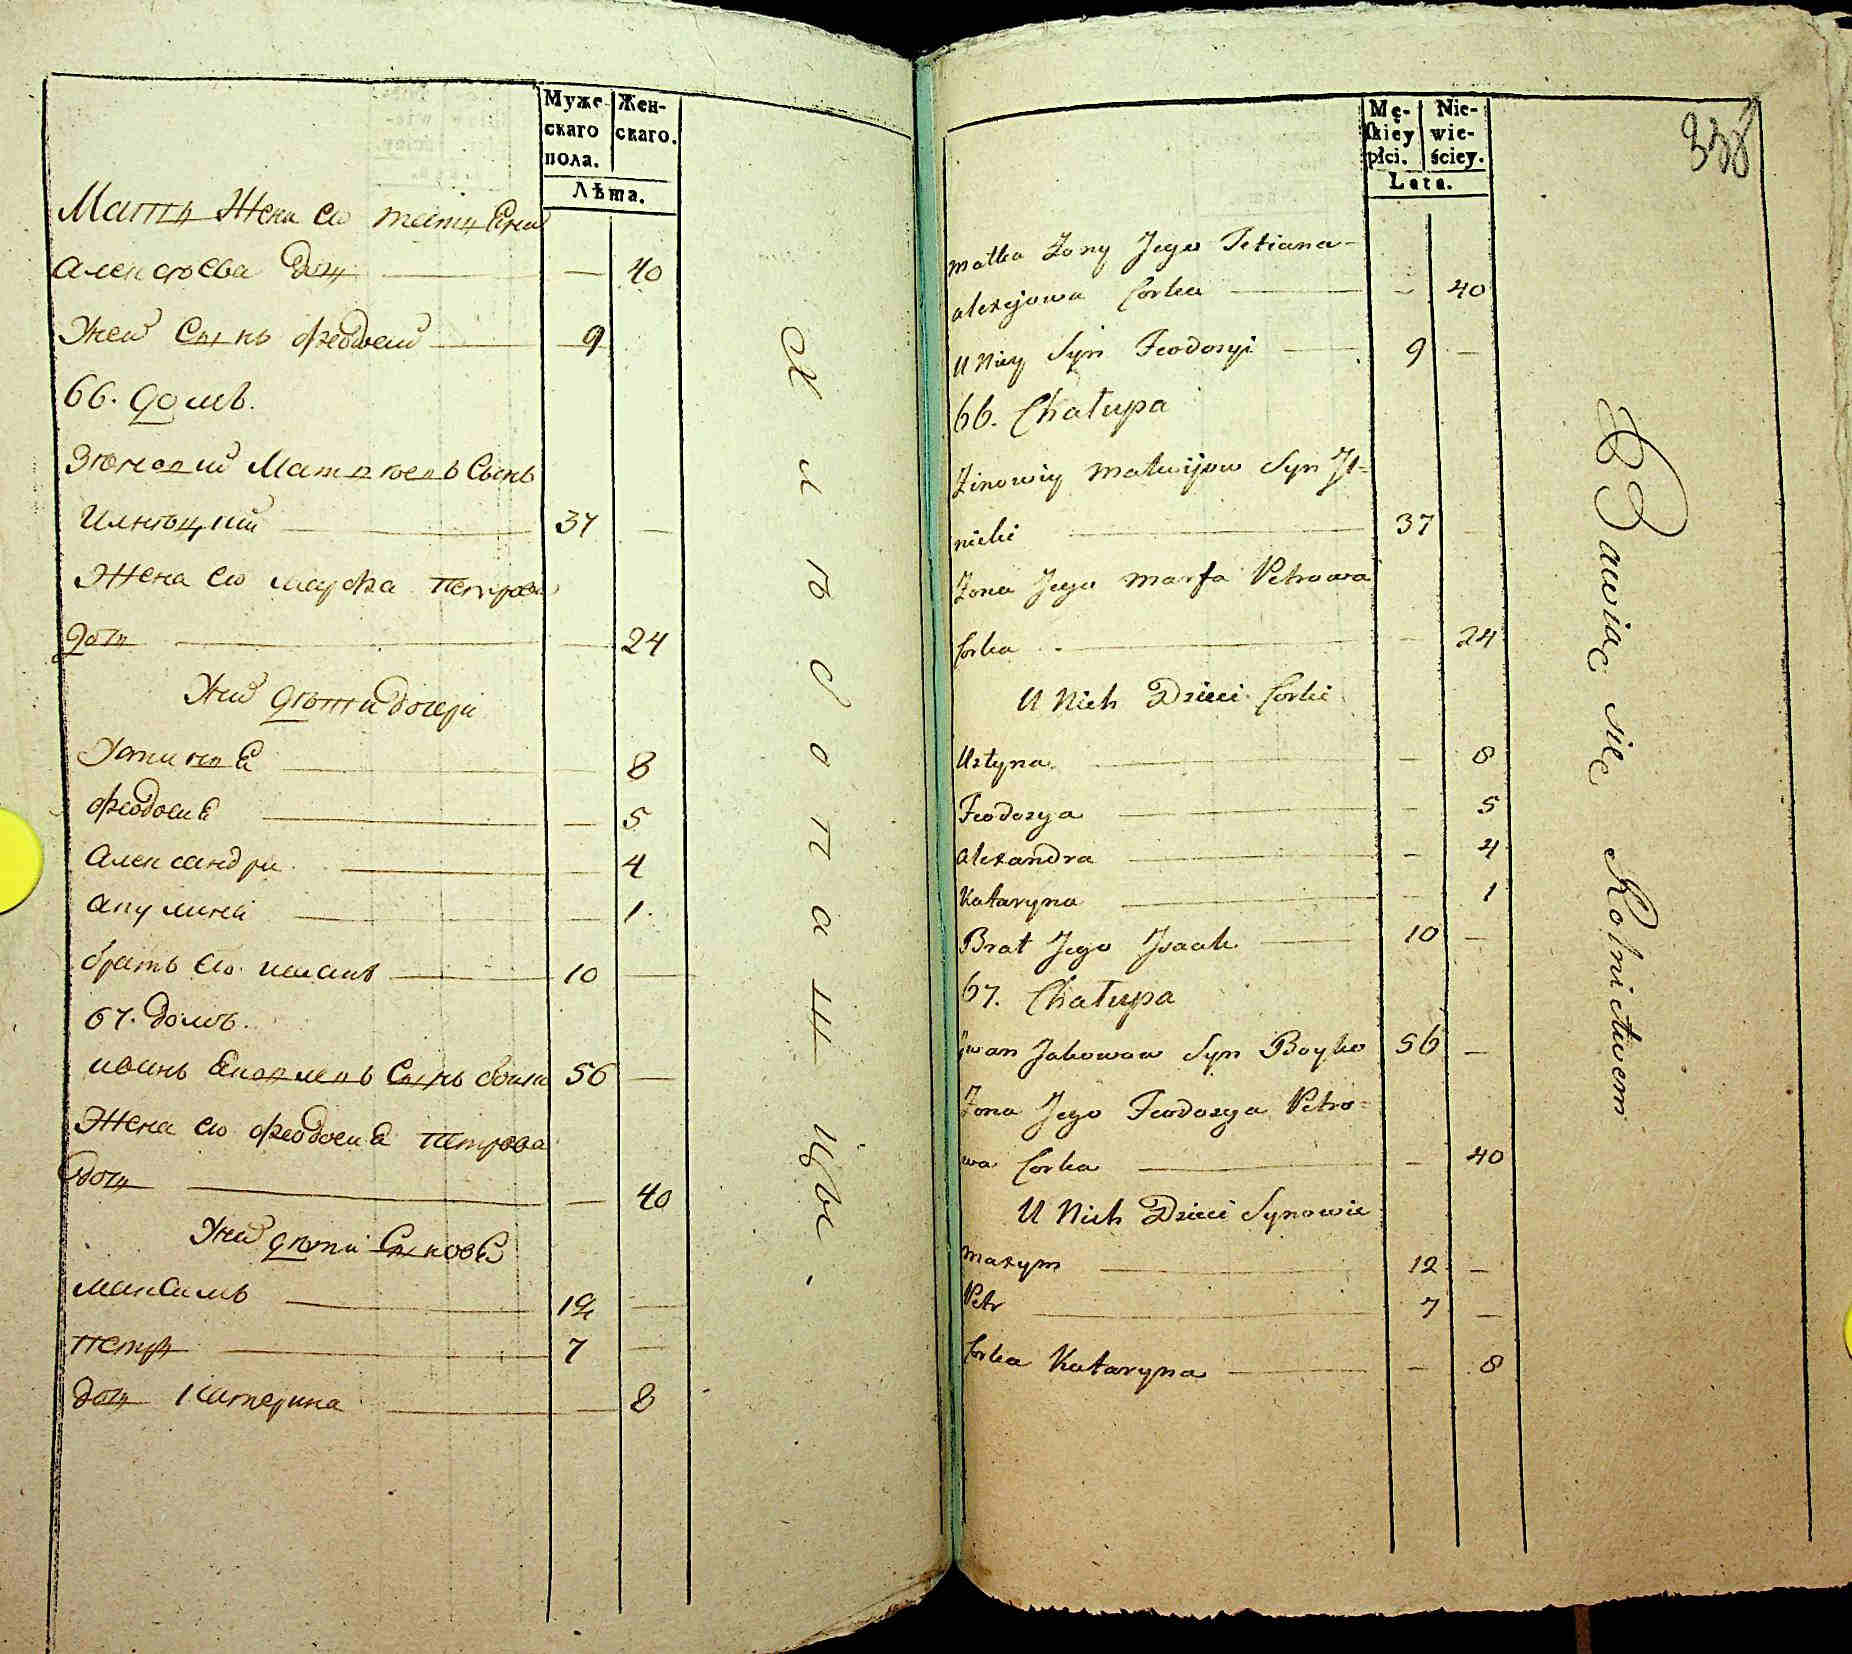 Муже- Жен-
скаго скаго.
пола.
Лѣта.
Мать Жени его татиѣни
алексѣева дочь — — 40
Унеи Сынъ феодосии — 9
66. домъ.
Зѣновии Матвѣевъ Сынъ
Илнѣцкии — 37 —
Жена его марфа Петрова
дочь — — 24
Уних дѣти дочери
Устинѣѣ — — 8
феодосиѣ — — 5
александри — — 4
— — 1
братъ его исакъ — 10 —
67. домъ.
иванъ Сынъ бойко 56 —
Жена его феодосиѣ петрова
дочь — — 40
Уних дѣти Синовѣ
максимъ — 12 —
петръ — 7 —
дочь катерина — — 8
Хлѣбопашцы.
338
Mę- Nie-
skiey wie-
płci. ściey.
Lata.
matka Żony Jego Tetiana
alexejowa Corka — — 40
U Niey Syn Feodosyi — 9 —
66. Chałupa
Zinowiy Matwijow Syn Jl=
nicki — 37 —
Żona Jego Marfa Petrowa
Corka — — 24
U Nich Dzieci Corki
Ustyna — — 8
Feodosya — — 5
alexandra — — 4
Kataryna — — 1
Brat Jego Jsaak — 10 —
67. Chałupa
Jwan Jakowow Syn Boyko 56 —
Żona Jego Feodosya Petro=
wa Corka — — 40
U Nich Dzieci Synowie
maxym — 12 —
Petr — 7 —
Corka Kataryna — — 8
Bawiąc się Rolnictwem